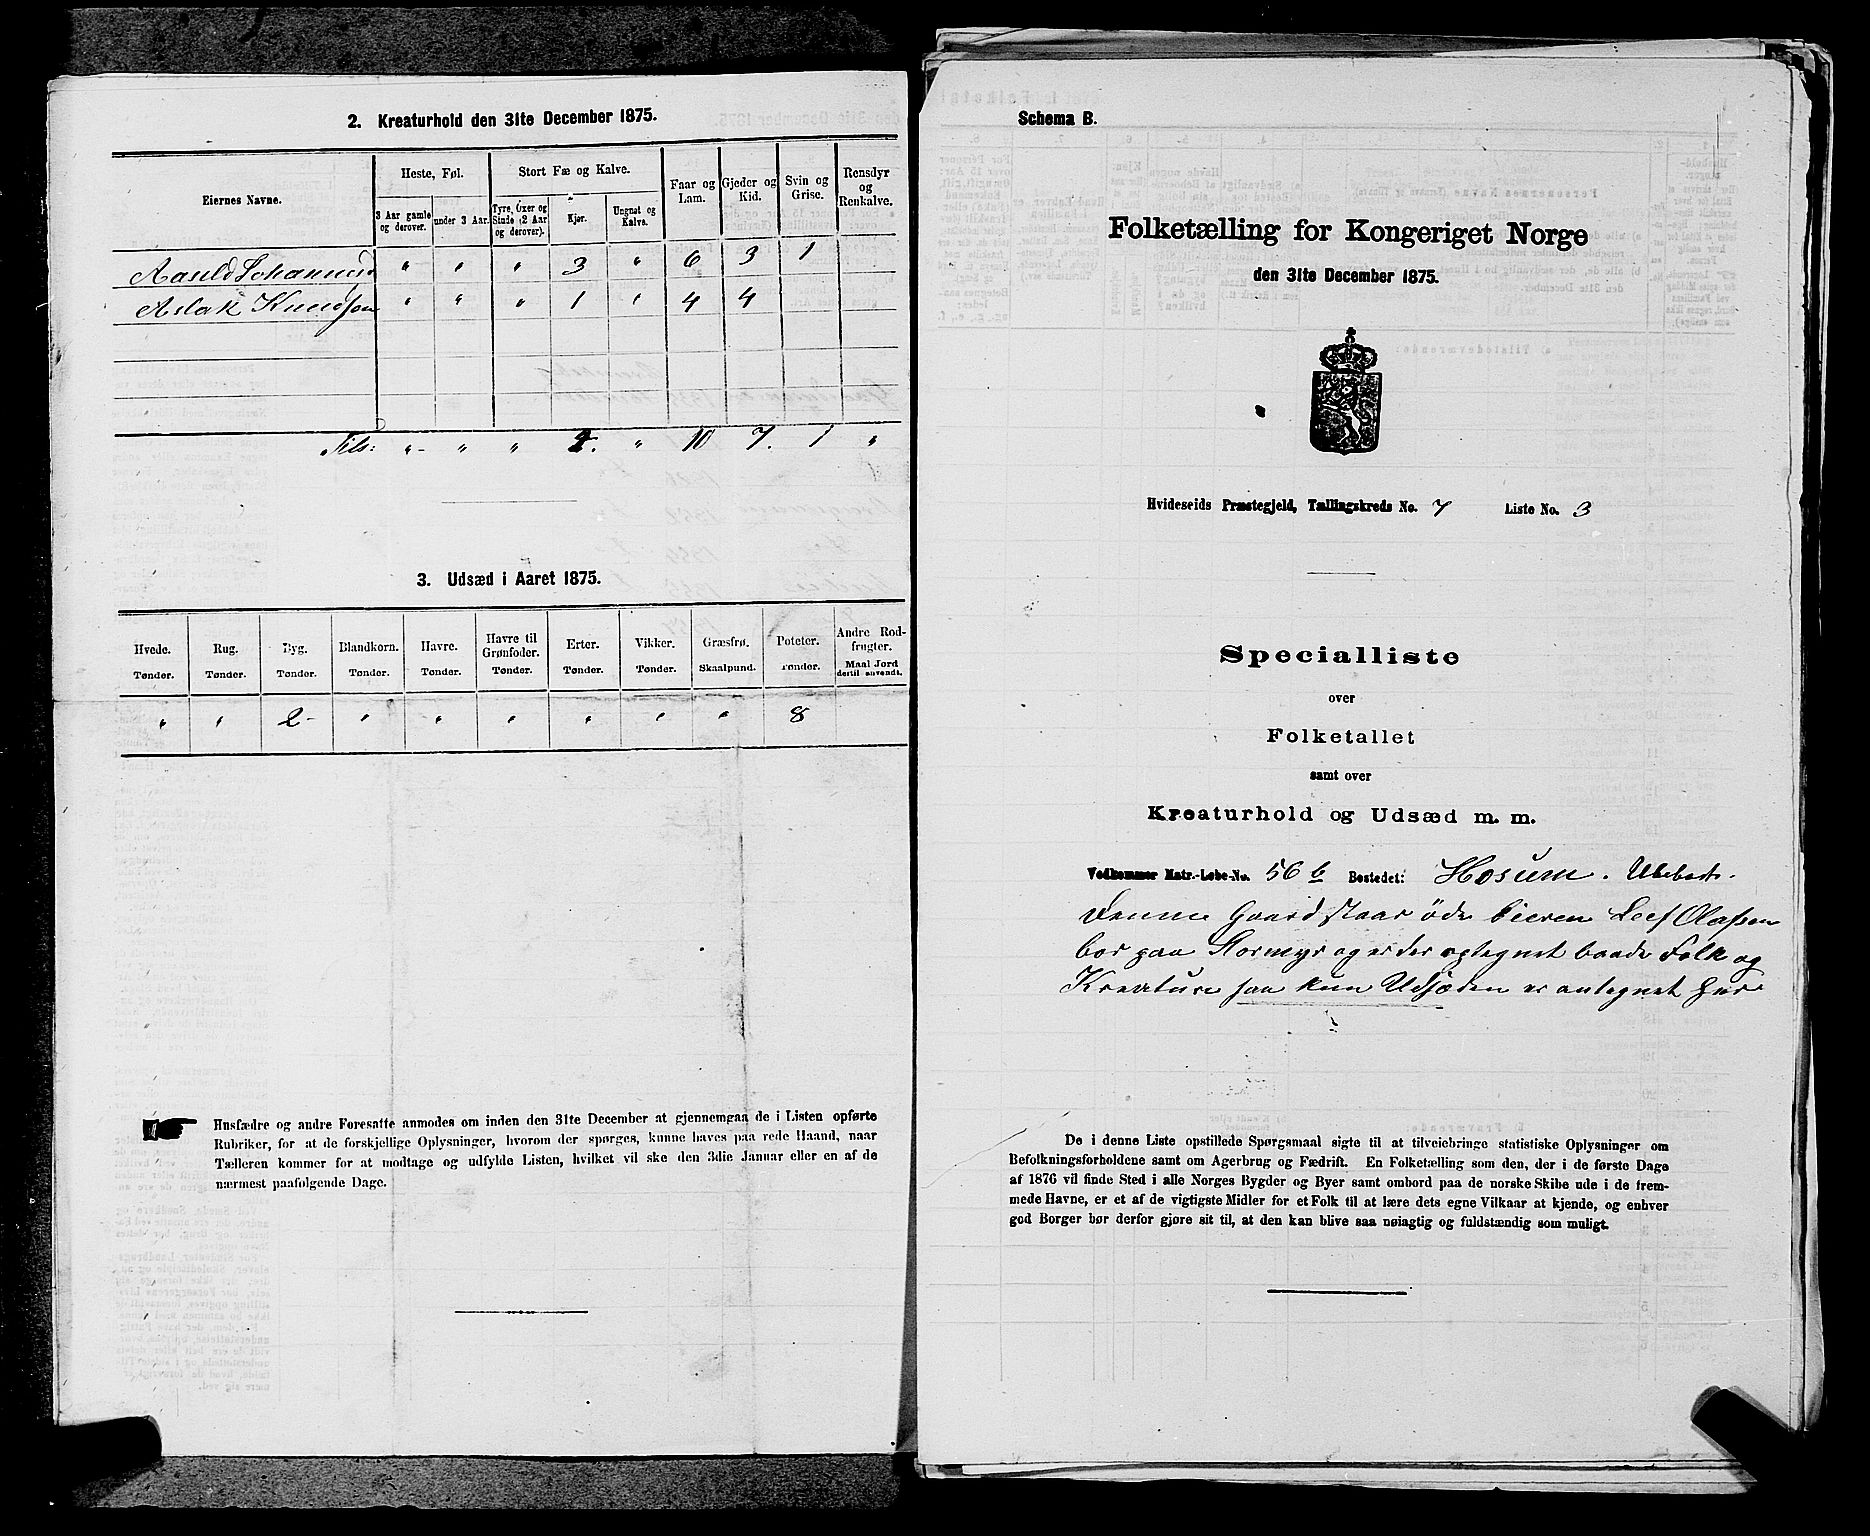 2. Kreaturhold den 31te December 1875.
Eiernes Navne.
Heste, Føl.
Stort Fæ og Kalve.
Faar og Lam.
Gjeder og Kid.
Svin og Grise.
Rensdyr og Renkalve.
3 Aar gamle og derover.
under 3 Aar.
Tyre, Oxer og Stude (2 Aar og derover).
Kjør.
Ungnøt og Kalve.
Johannes " " " 3 " 6 3 1
Aslak Knudsen " " " 1 " 4 4
Tils: " " " 4. " 10 7. 1 "
3. Udsæd i Aaret 1875.
Hvede. Rug. Byg. Blandkorn. Havre. Havre til Grønfoder. Erter. Vikker. Græsfrø. Poteter. Andre Rodfrugter.
Tønder. Tønder. Tønder. Tønder. Tønder. Tønder. Tønder. Tønder. Skaalpund. Tønder. Maal Jord dertil anvendt.
" " 2 " " " " " " 8
Husfædre og andre Foresatte anmodes om inden den 31te December at gjennemgaa de i Listen opførte
Rubriker, for at de forskjellige Oplysninger, hvorom der spørges, kunne haves paa rede Haand, naar
Tælleren kommer for at modtage og udfylde Listen, hvilket vil ske den 3die Januar eller en af de
nærmest paafølgende Dage.
Schema B.
Folketælling for Kongeriget Norge
den 31te December 1875.
Hvideseids Præstegjeld, Tællingskreds No. 7 Liste No. 3
Specialliste
over
Folketallet
samt over
Kreaturhold og Udsæd m. m.
Vedkommer Matr.-Løbe-No. 56 b Bostedet: Hosum. Ubebodt.
Denne Gaard staar öde Eieren Leif Olassen
bor paa Stormyr og er der optegnet baade Folk og
Kreature saa kun Udsæden er antegnet her
De i denne Liste opstillede Spørgsmaal sigte til at tilveiebringe statistiske Oplysninger om
Befolkningsforholdene samt om Agerbrug og Fædrift. En Folketælling som den, der i de første Dage
af 1876 vil finde Sted i alle Norges Bygder og Byer samt ombord paa de norske Skibe ude i de frem-
mede Havne, er et af de vigtigste Midler for et Folk til at lære dets egne Vilkaar at kjende, og enhver
god Borger bør derfor gjøre sit til, at den kan blive saa nøiagtig og fuldstændig som muligt.